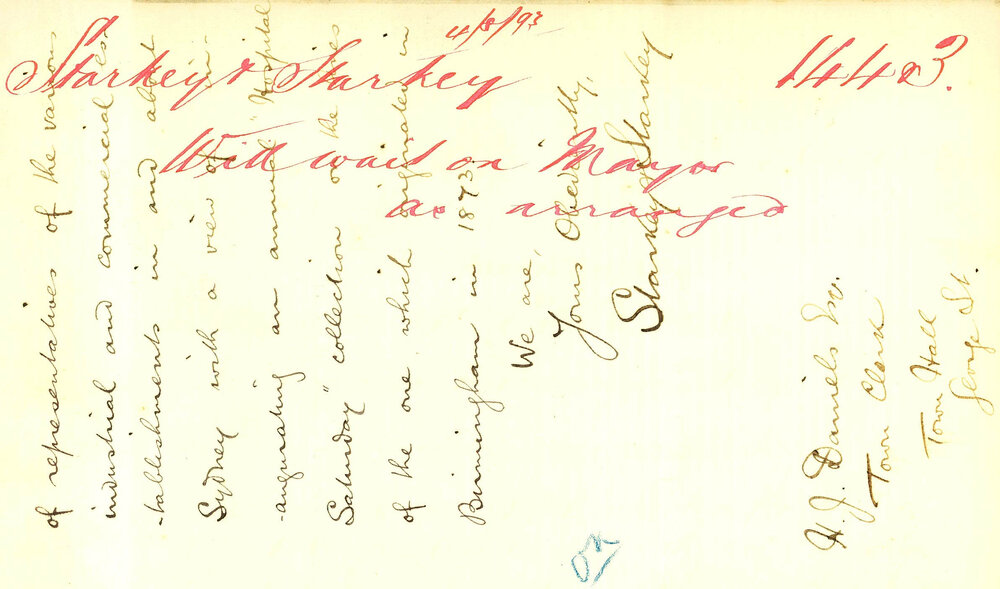 4/8/93
Starkey & Starkey
1443.
Will wait on Mayor
as arranged
of representatives of the various
industrial and commercial es-
-tablishments in and about
Sydney with a view of in-
-augurating an annual "Hospital
Saturday" collection on the lines
of the one which originated in
Birmingham in 1873
We are,
Yours Obediently,
Starkey & Starkey
H. J. Daniels Esq.
Town Clerk
Town Hall
George St.